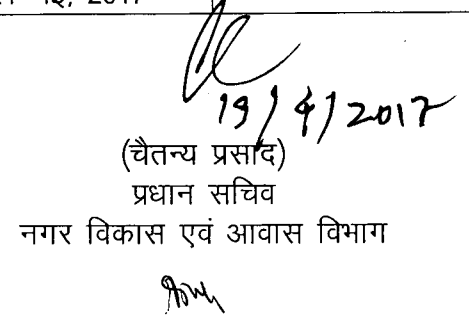 19/4/2017
(चैतन्य प्रसाद)
प्रधान सचिव
नगर विकास एवं आवास विभाग